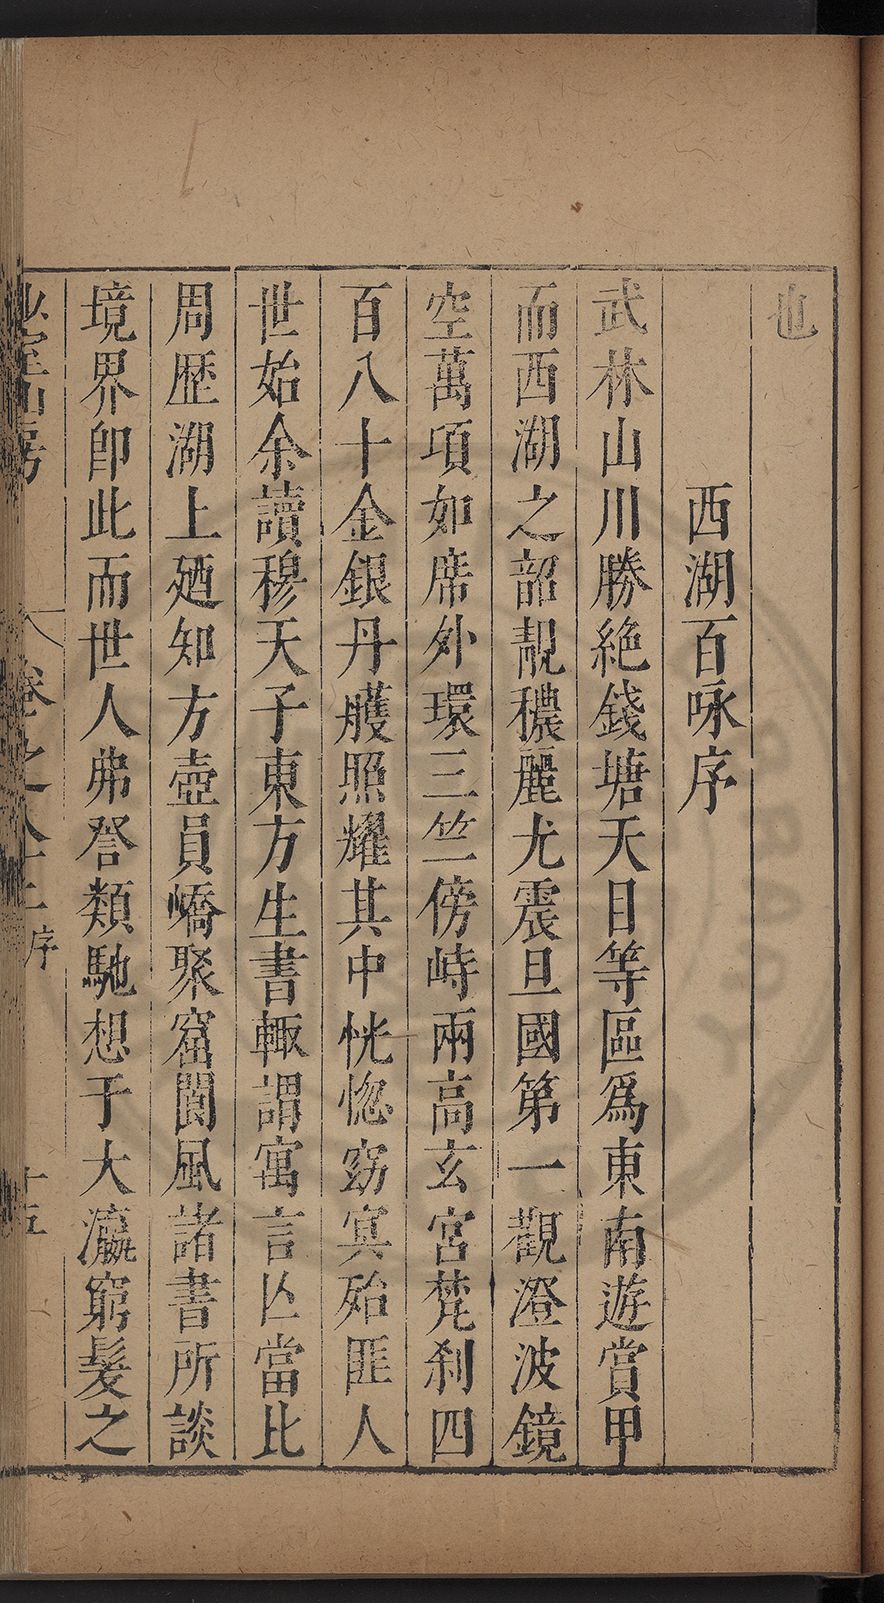 也
西湖百咏序
武林山川勝絶錢塘天目等區爲東南遊賞甲
而西湖之韶靚穠麗尤震旦國第一觀澄波鏡
空萬項如席外環三竺傍峙兩高玄宮梵刹四
百八十金銀丹雘照耀其中恍惚窈冥殆匪人
世始余讀穆天子東方生書輙謂寓言亾當比
周歴湖上廼知方壺員嶠聚窟閬風諸書所談
境界卽此而世人弗詧類馳想于大瀛窮髮之
卷之八十二 序
十五